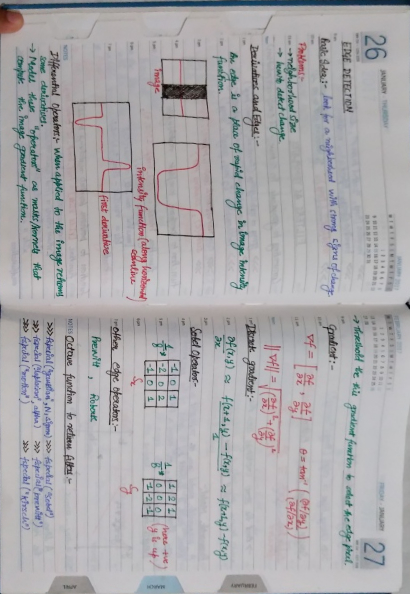 26
JANUARY
EDGE DETECTION
Basic Idea:- look for a neighborhood with strong signs of change
Problems:-
→ neighborhood size
→ how to detect change
Derivatives and Edges:-
An edge is a place of rapid change in image intensity
function.
Image
intensity function (along horizontal
scanline)
first derivative
Differential Operators:- when applied to the image returns
some derivatives.
→ Model these "operators" as masks/kernels that
compute the image gradient function.
NOTES
27
JANUARY
→ threshold the this gradient function to select the edge pixel.
Gradient:-
∇f = [∂f/∂x, ∂f/∂y] θ = tan⁻¹ (∂f/∂y / ∂f/∂x)
||∇f|| = √(∂f/∂x)² + (∂f/∂y)²
Discrete gradient:-
∂f(x,y)/∂x ≈ f(x+1,y) - f(x,y)/1 ≈ f(x+1,y) - f(x,y)
Sobel Operator:-
1/8 * -1 0 1 1/8 * 1 2 1
-2 0 2 0 0 0 (here +ve
-1 0 1 -1 -2 -1 y is up)
Sx Sy
Other edge operators:-
Prewitt, Roberts
NOTES Octave function to return filters:-
>>> fspecial("gaussian", N, sigma) >>> fspecial("sobel")
>>> fspecial("laplacian", alpha) >>> fspecial("prewitt")
FEBRUARY
MARCH
APRIL